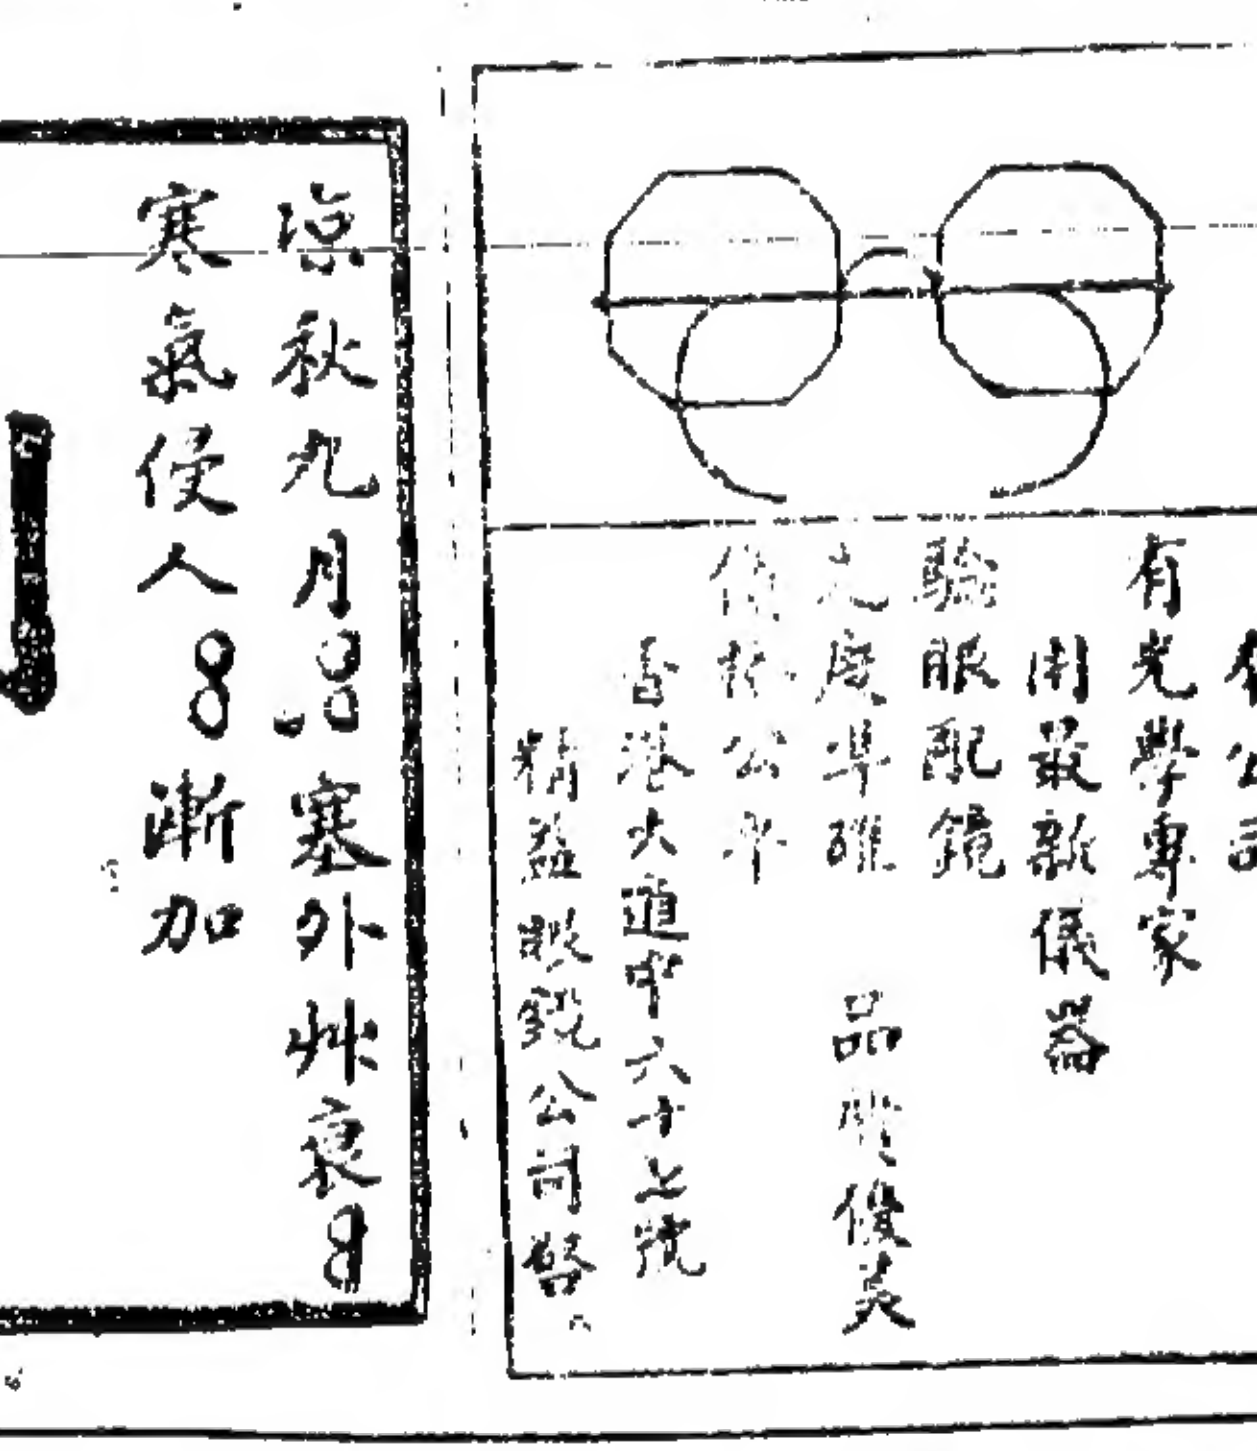 公司
有光學專家
用最新儀器
驗眼配鏡
光度準確 品質優美
價格公平
香港大道中六十七號
精益眼鏡公司啓
凉秋九月 塞外艸衰
寒氣侵人 漸加